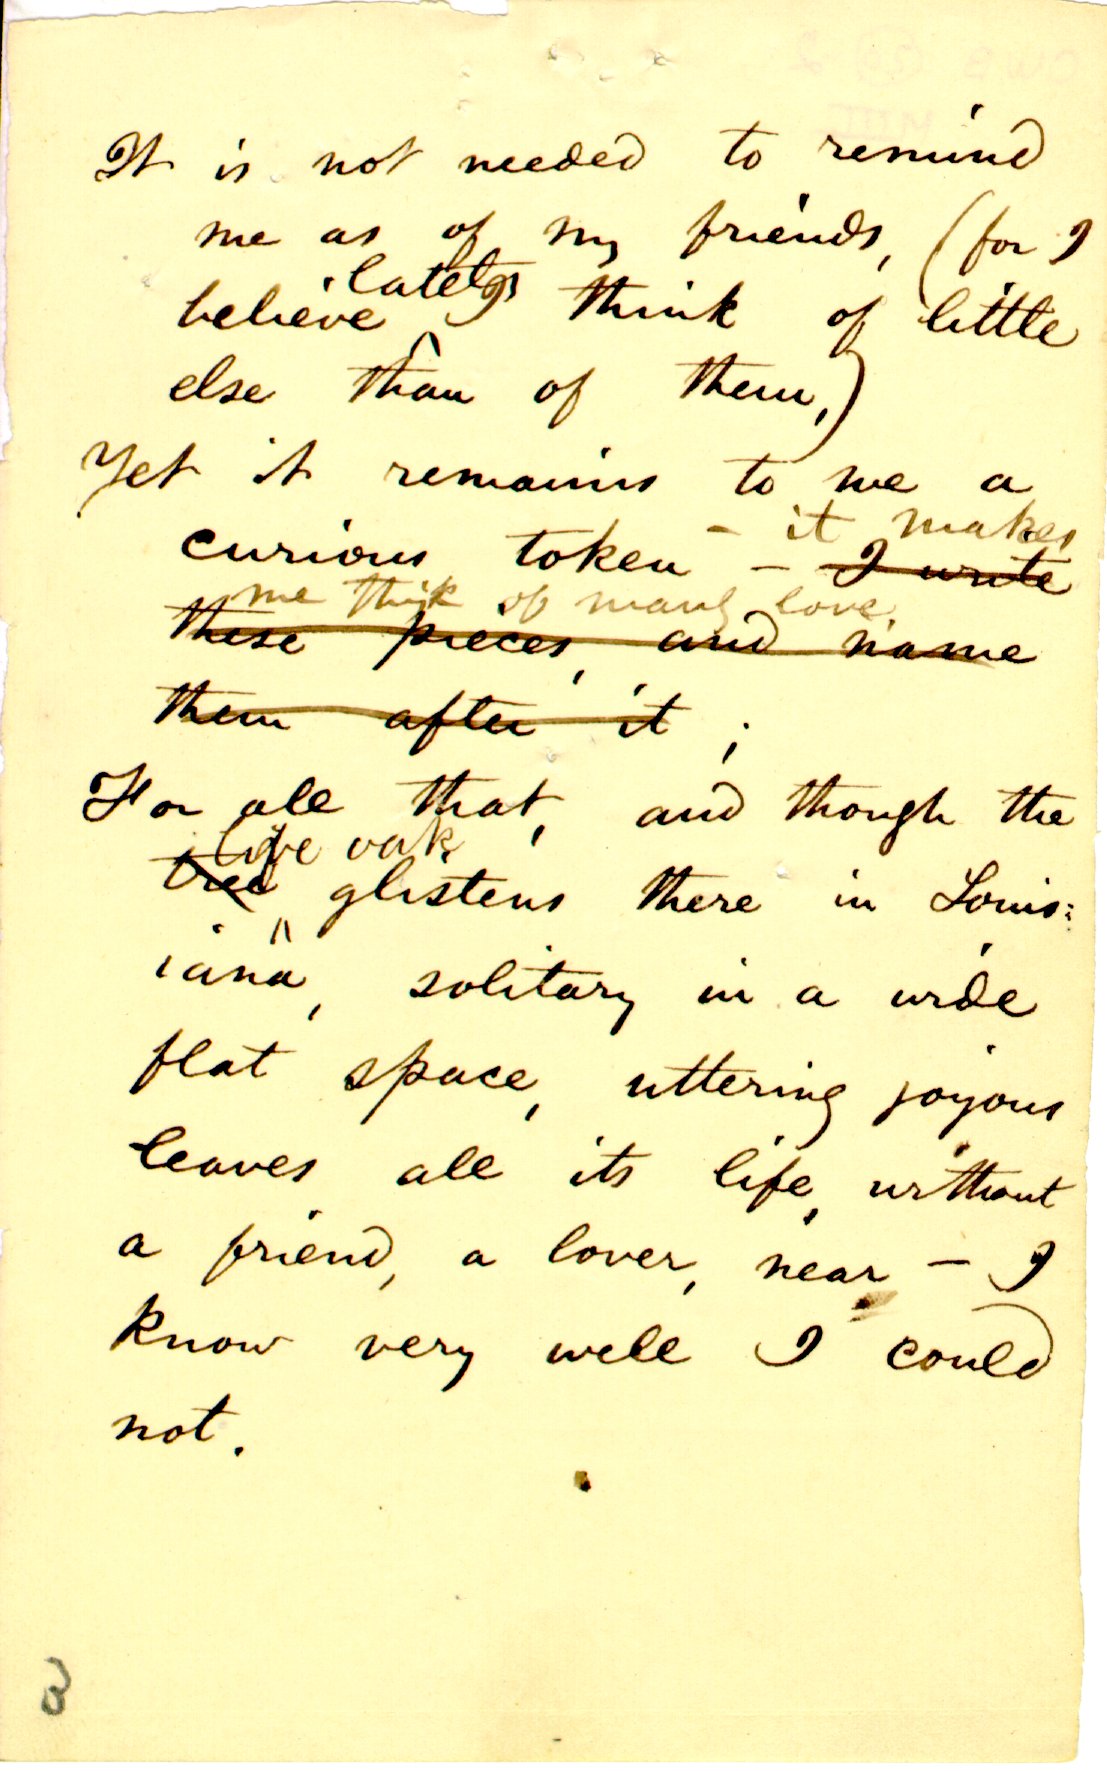 It is not needed to remind
me as of my friends, (for I
lately
believe I think of little
else than of them,)
Yet it remains to me a
– it makes
curious token – I write
me think of manly love,
these pieces, and name
them after it;
For all that, and though the
live oak
tree glistens there in Louis:
iana, solitary in a wide
flat space, uttering joyous
leaves all its life, without
a friend, a lover, near – I
know very well I could
not.